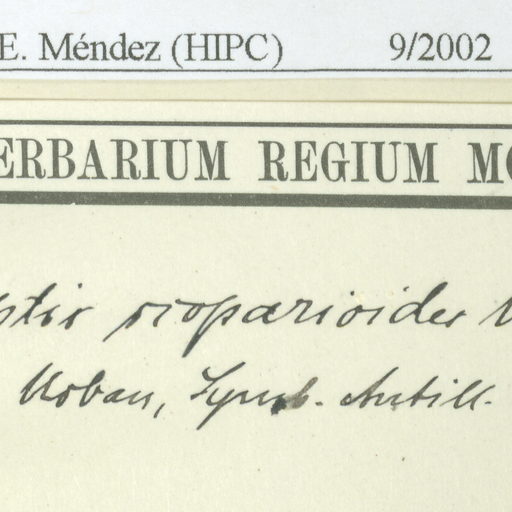 E. Méndez (HIPC) 9/2002
ERBARIUM REGIUM MO
ptis scoparioides U
Urban, Symb. Antill.